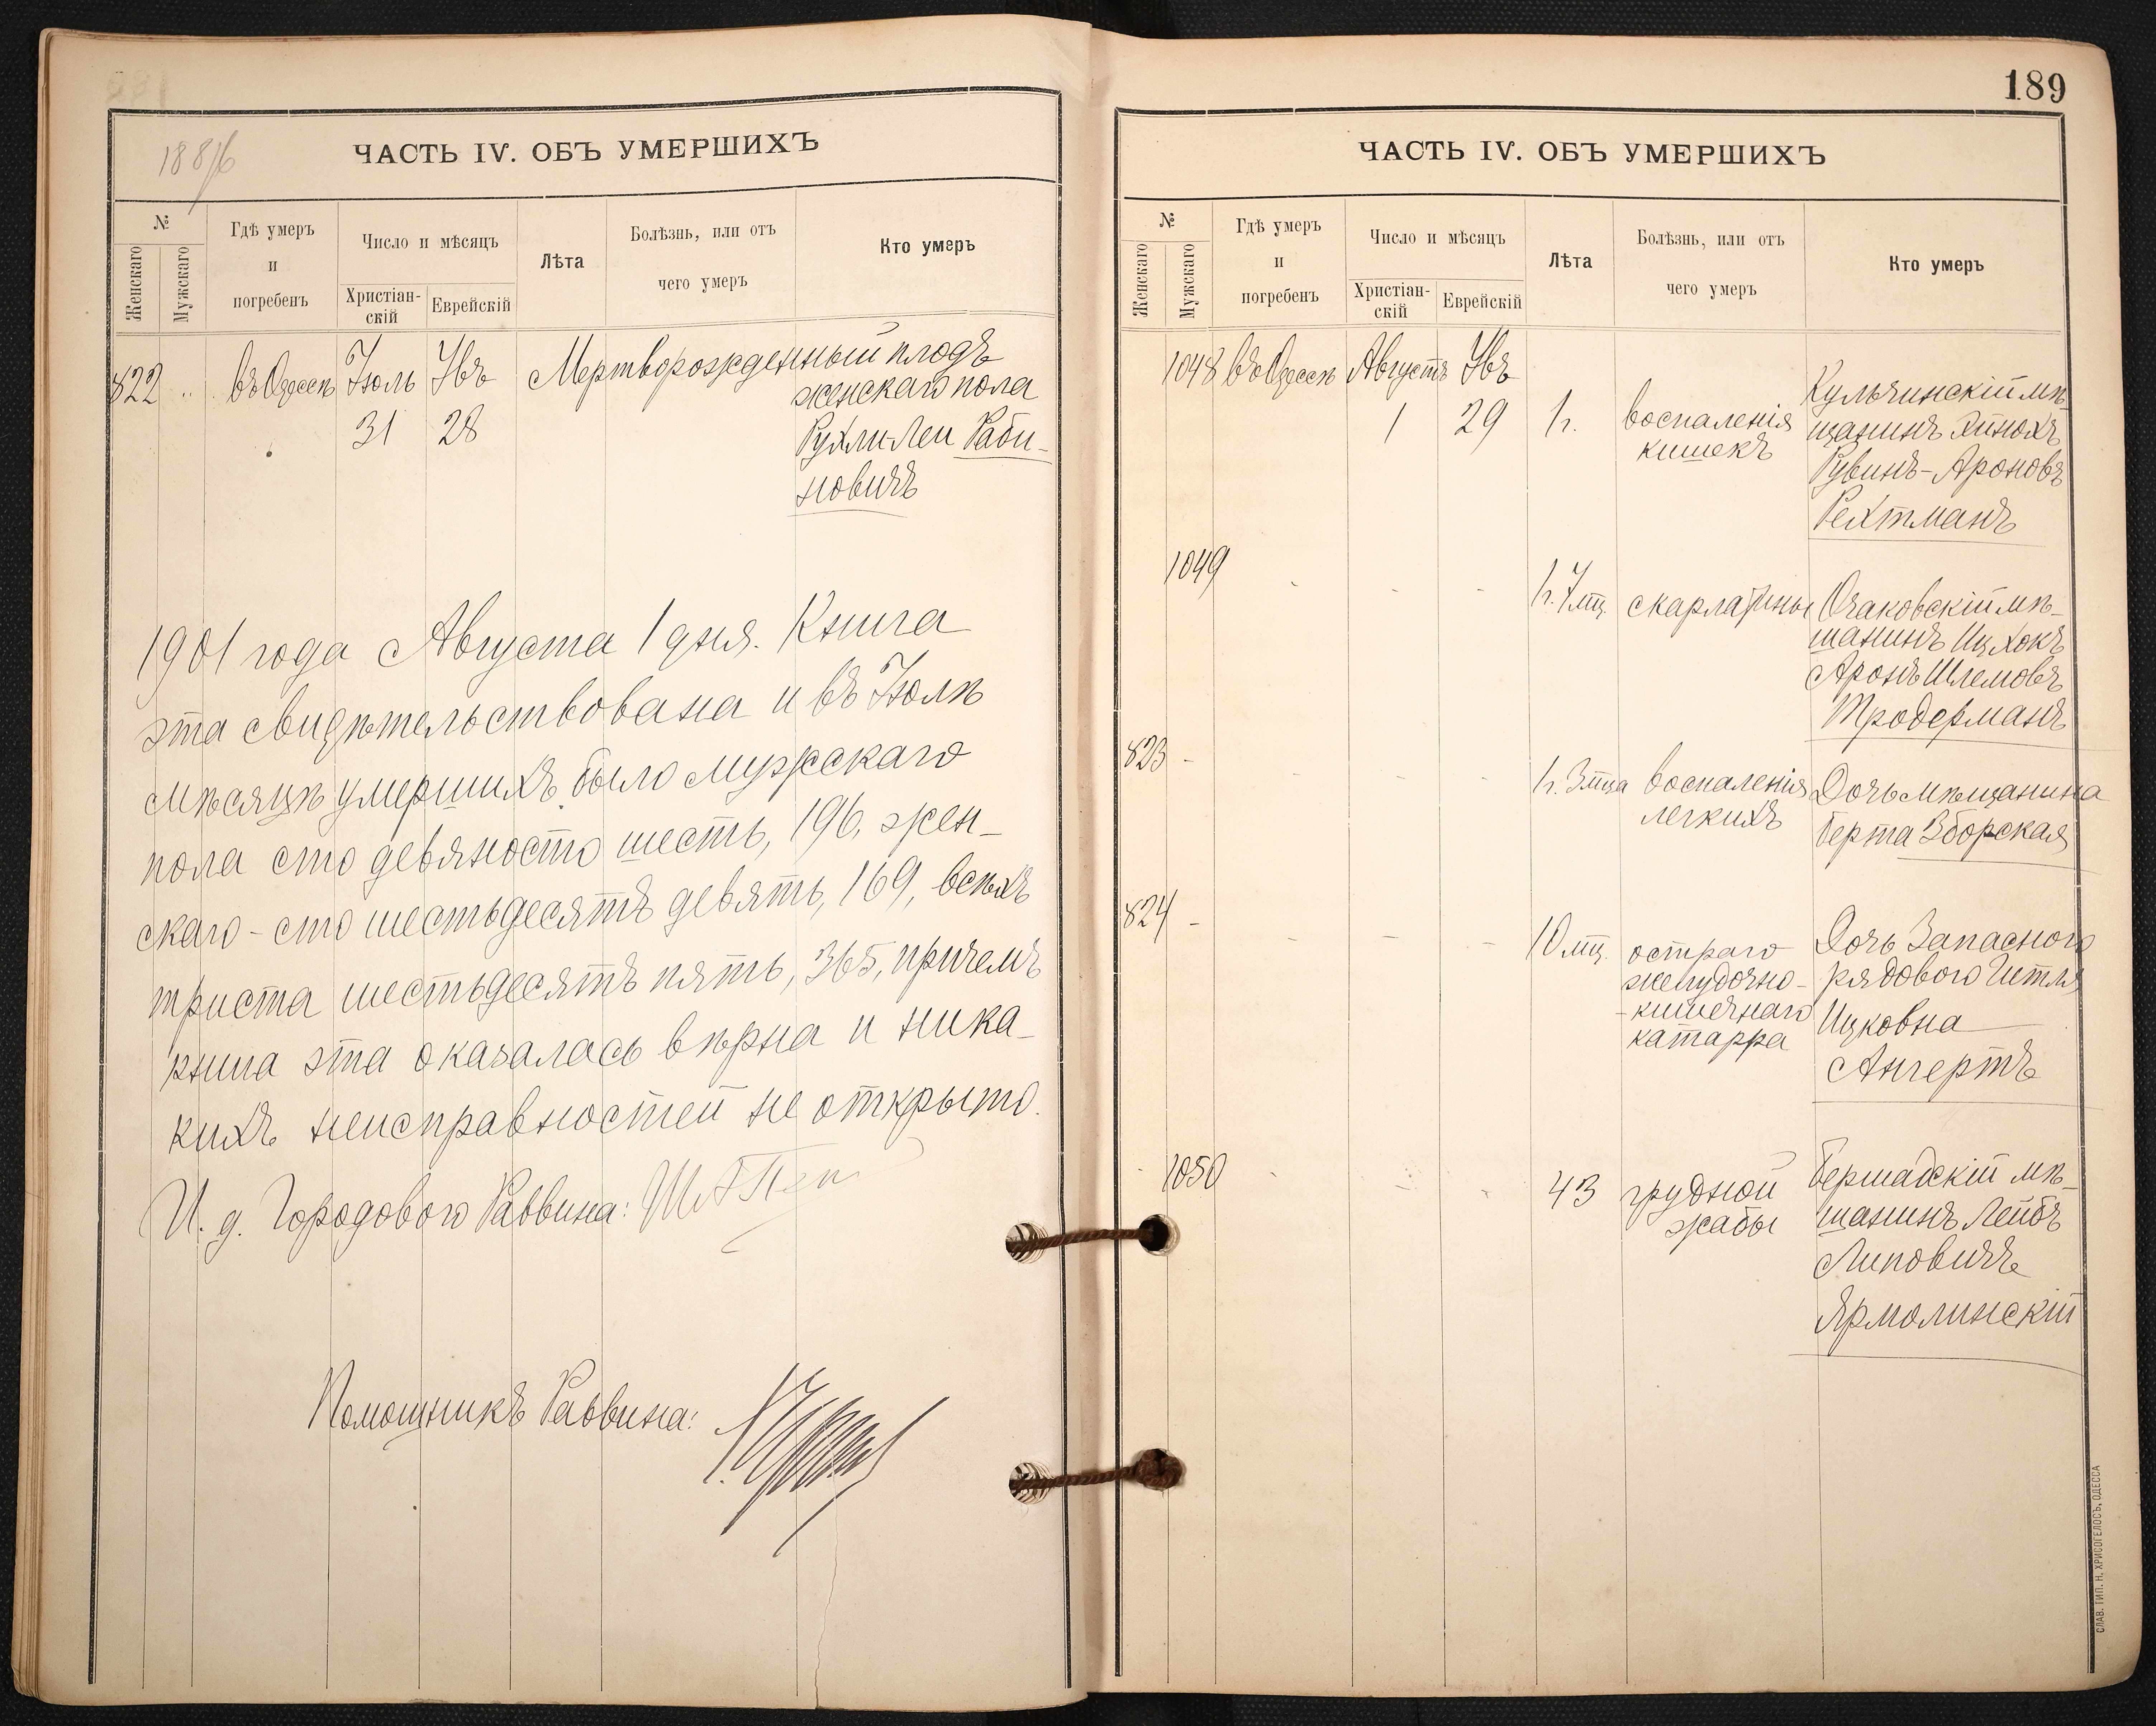 188/6
ЧАСТЬ IV. ОБЪ УМЕРШИХЪ
№
Женскаго
Мужскаго
Гдѣ умеръ
и
погребенъ
Число и мѣсяцъ
Христіан-
скій
Еврейскій
Лѣта
Болѣзнь, или отъ
чего умеръ
Кто умеръ
822 " въ Одессѣ Іюль 31 Увъ 28 Мертворожденный плодъ
женскаго пола
Рухли Леи Раби-
новичъ
1901 года Августа 1 дня. Книга
эта свидѣтельствована и въ Іюлѣ
мѣсяцѣ умершихъ было мужскаго
пола сто девяносто шесть, 196, жен-
скаго - сто шестьдесятъ девять, 169, всѣхъ
триста шестьдесятъ пять, 365, причемъ
книга эта оказалась вѣрна и ника-
кихъ неисправностей не открыто.
И. д. Городового Раввина:
Помощникъ Раввина:
189
ЧАСТЬ IV. ОБЪ УМЕРШИХЪ
№
Женскаго
Мужскаго
Гдѣ умеръ
и
погребенъ
Число и мѣсяцъ
Христіан-
скій
Еврейскій
Лѣта
Болѣзнь, или отъ
чего умеръ
Кто умеръ
1048 въ Одессѣ Августъ 1 Увъ 29 1 г. воспаленія
кишекъ
Кульчинскій мѣ-
щанинъ Хинохъ
Рувинъ-Ароновъ
Рехтманъ
1049 - - - 1 г. 7 мц. скарлатины
Очаковскій мѣ-
щанинъ Ицхокъ
Аронъ Шлемовъ
Тродерманъ
823 - - - - 1 г. 3 мца воспаленія
легкихъ
Дочь мѣщанина
Берта Зборская
824 - - - - 10 мц. остраго
желудочно-
-кишечнаго
катарра
Дочь Запасного
рядового Гитля
Ицковна
Ангертъ
1050 - - - 43 грудной
жабы
Бершадскій мѣ-
щанинъ Лейбъ
Липовичъ
Ярмолинскій
СЛАВ. ТИП. Н. ХРИСОГЕЛОСЪ, ОДЕССА